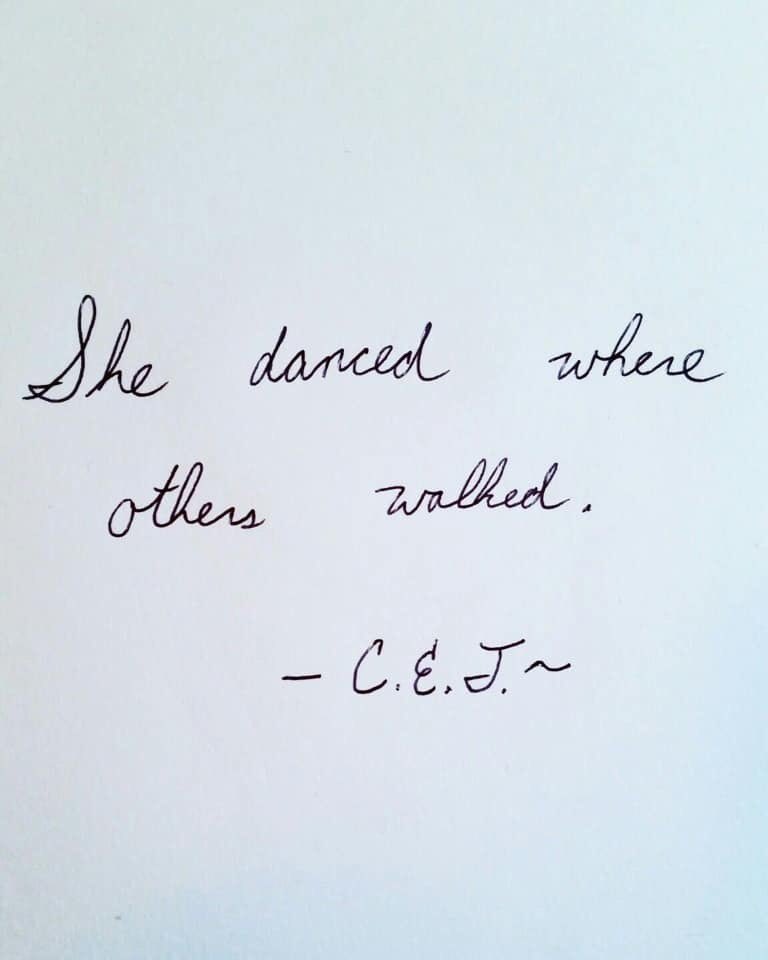 She danced where
others walked.
— C.E.J.~